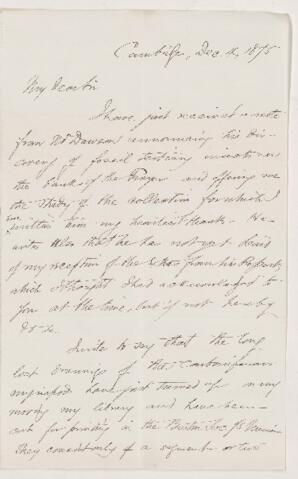 Cambridge, Dec. 4, 1875
My dear Sir
I have just received a note
from Dr Dawson announcing his dis-
covery of fossil tertiary insects on
the banks of the Frazer and offering me
the study of the collection for which I
written him my heartiest thanks. He
writes also that he has not yet heard
of my reception of the from his
which I thought I had acknowledged to
you at the time, but if not hereby
do so.
I write to say that the long
lost drawings of the Carboniferous
myriapods have just turned up in my
moving my library and have been
cut for printing in the Boston Soc.
They consist only of a segment or two